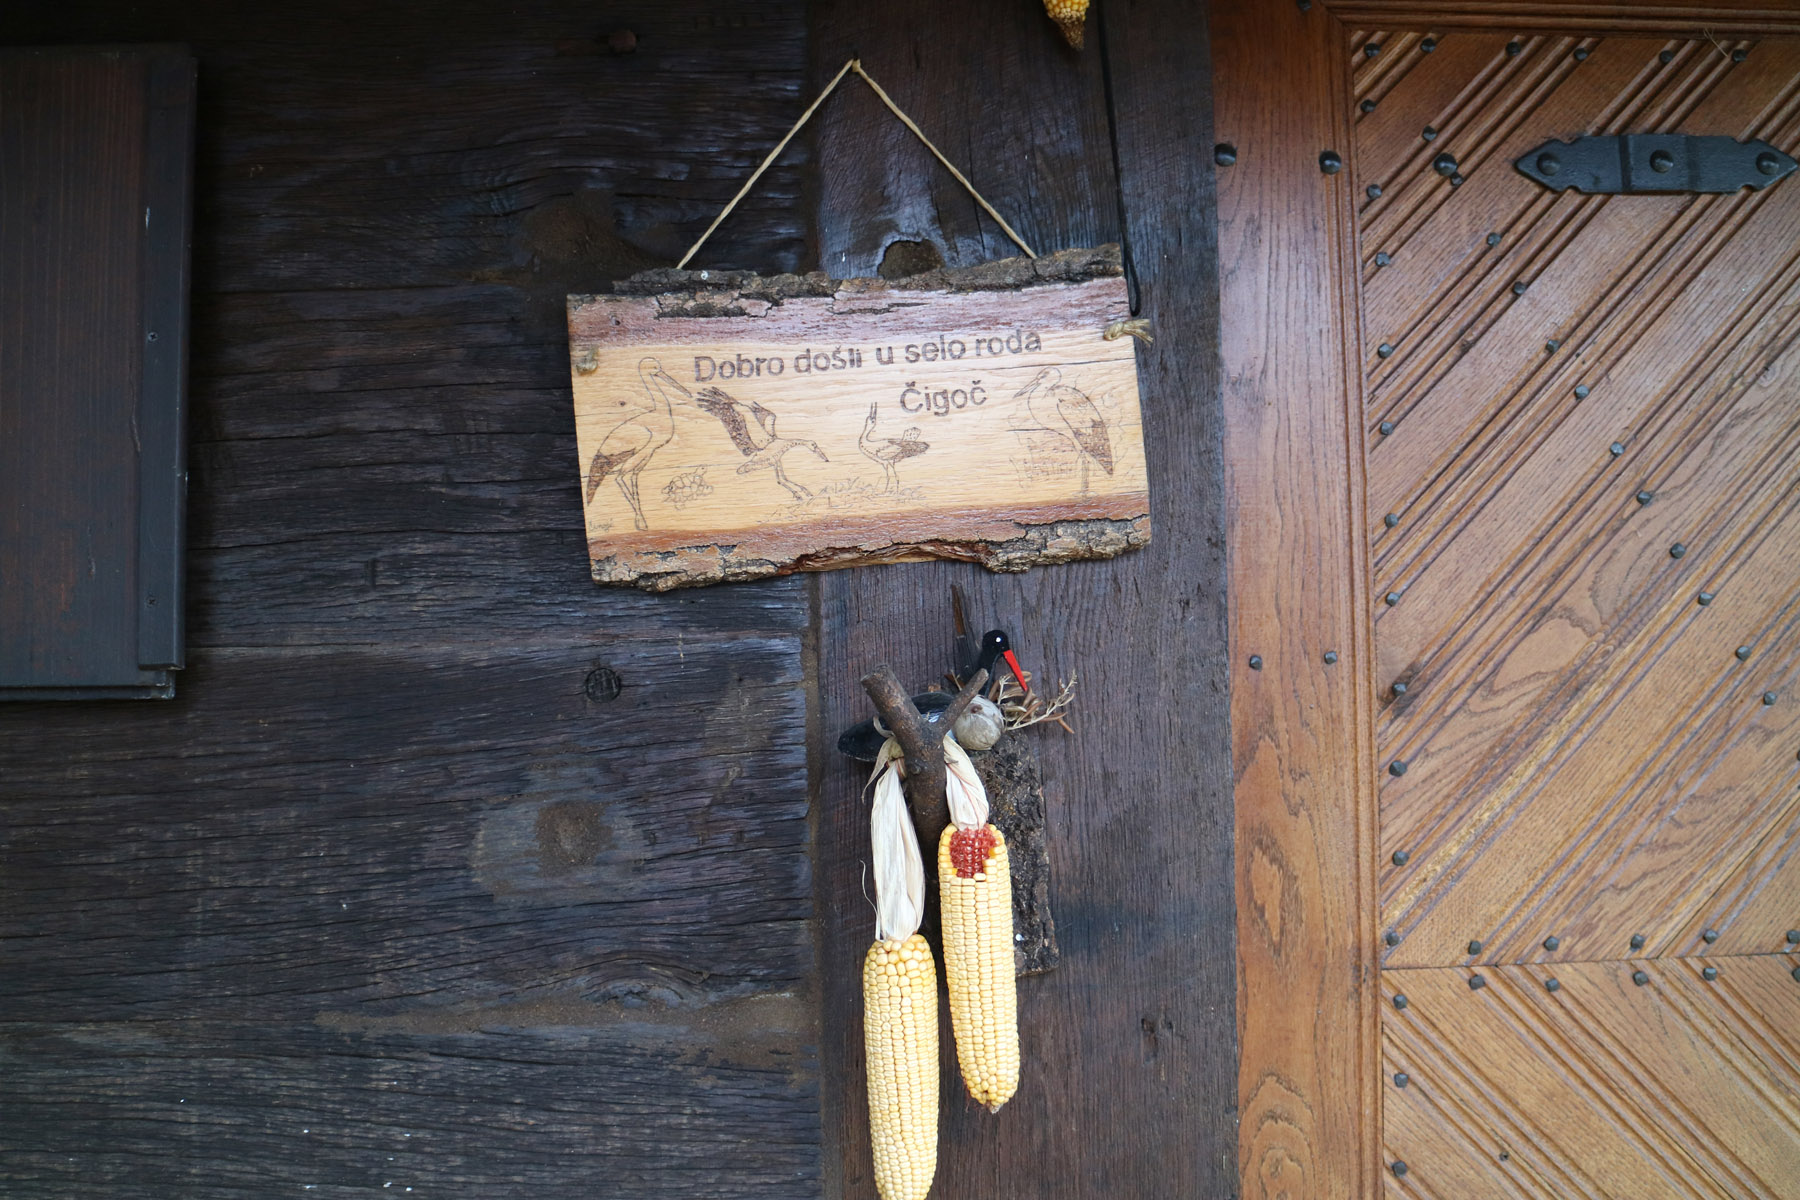 Dobro došli u selo roda
Čigoč